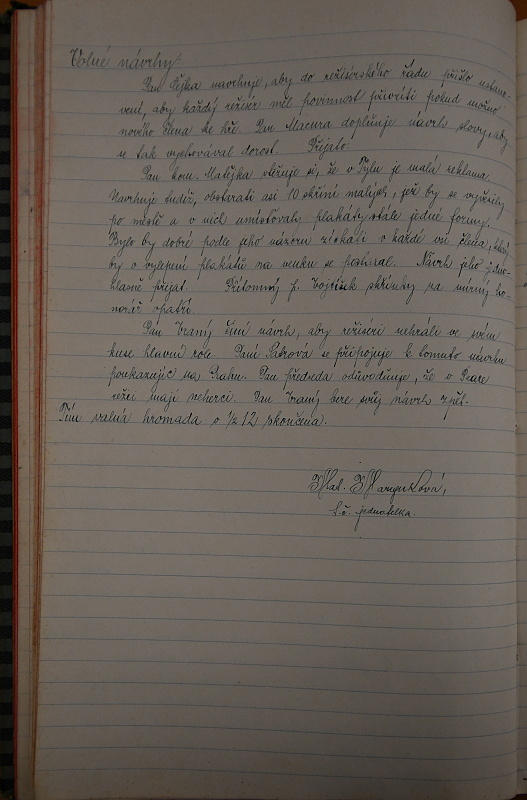 Volné návrhy:
Pan Čejka navrhuje, aby do režisérského řádu přišlo ustano-
vení, aby každý režisér měl povinnost přizvati pokud možno
nového člena ke hře. Pan Macura doplňuje návrh slovy, aby
se tak vychovával dorost. Přijato.
Pan kom. Matějka stěžuje si, že v Tylu je malá reklama.
Navrhuje tudíž, obstarati asi 10 skříní malých, jež by se vyvěsily
po městě a v nich umísťovaly plakáty stále jedné formy.
Bylo by dobré podle jeho názoru získati v každé vsi člena, který
by o vylepení plakátů na venku se postaral. Návrh jeho jedno-
hlasně přijat. Přítomný p. Vojtíšek skříňky za mírný ho-
norář opatří.
Pan Vraný činí návrh, aby režiséři nehráli ve svém
kuse hlavní role. Paní Petrová se připojuje k tomuto návrhu
poukazujíc na Prahu. Pan předseda odůvodňuje, že v Praze
režii mají neherci. Pan Vraný bere svůj návrh zpět.
Tím valná hromada o 1/2 12 skončena.
t.č. jednatelka.